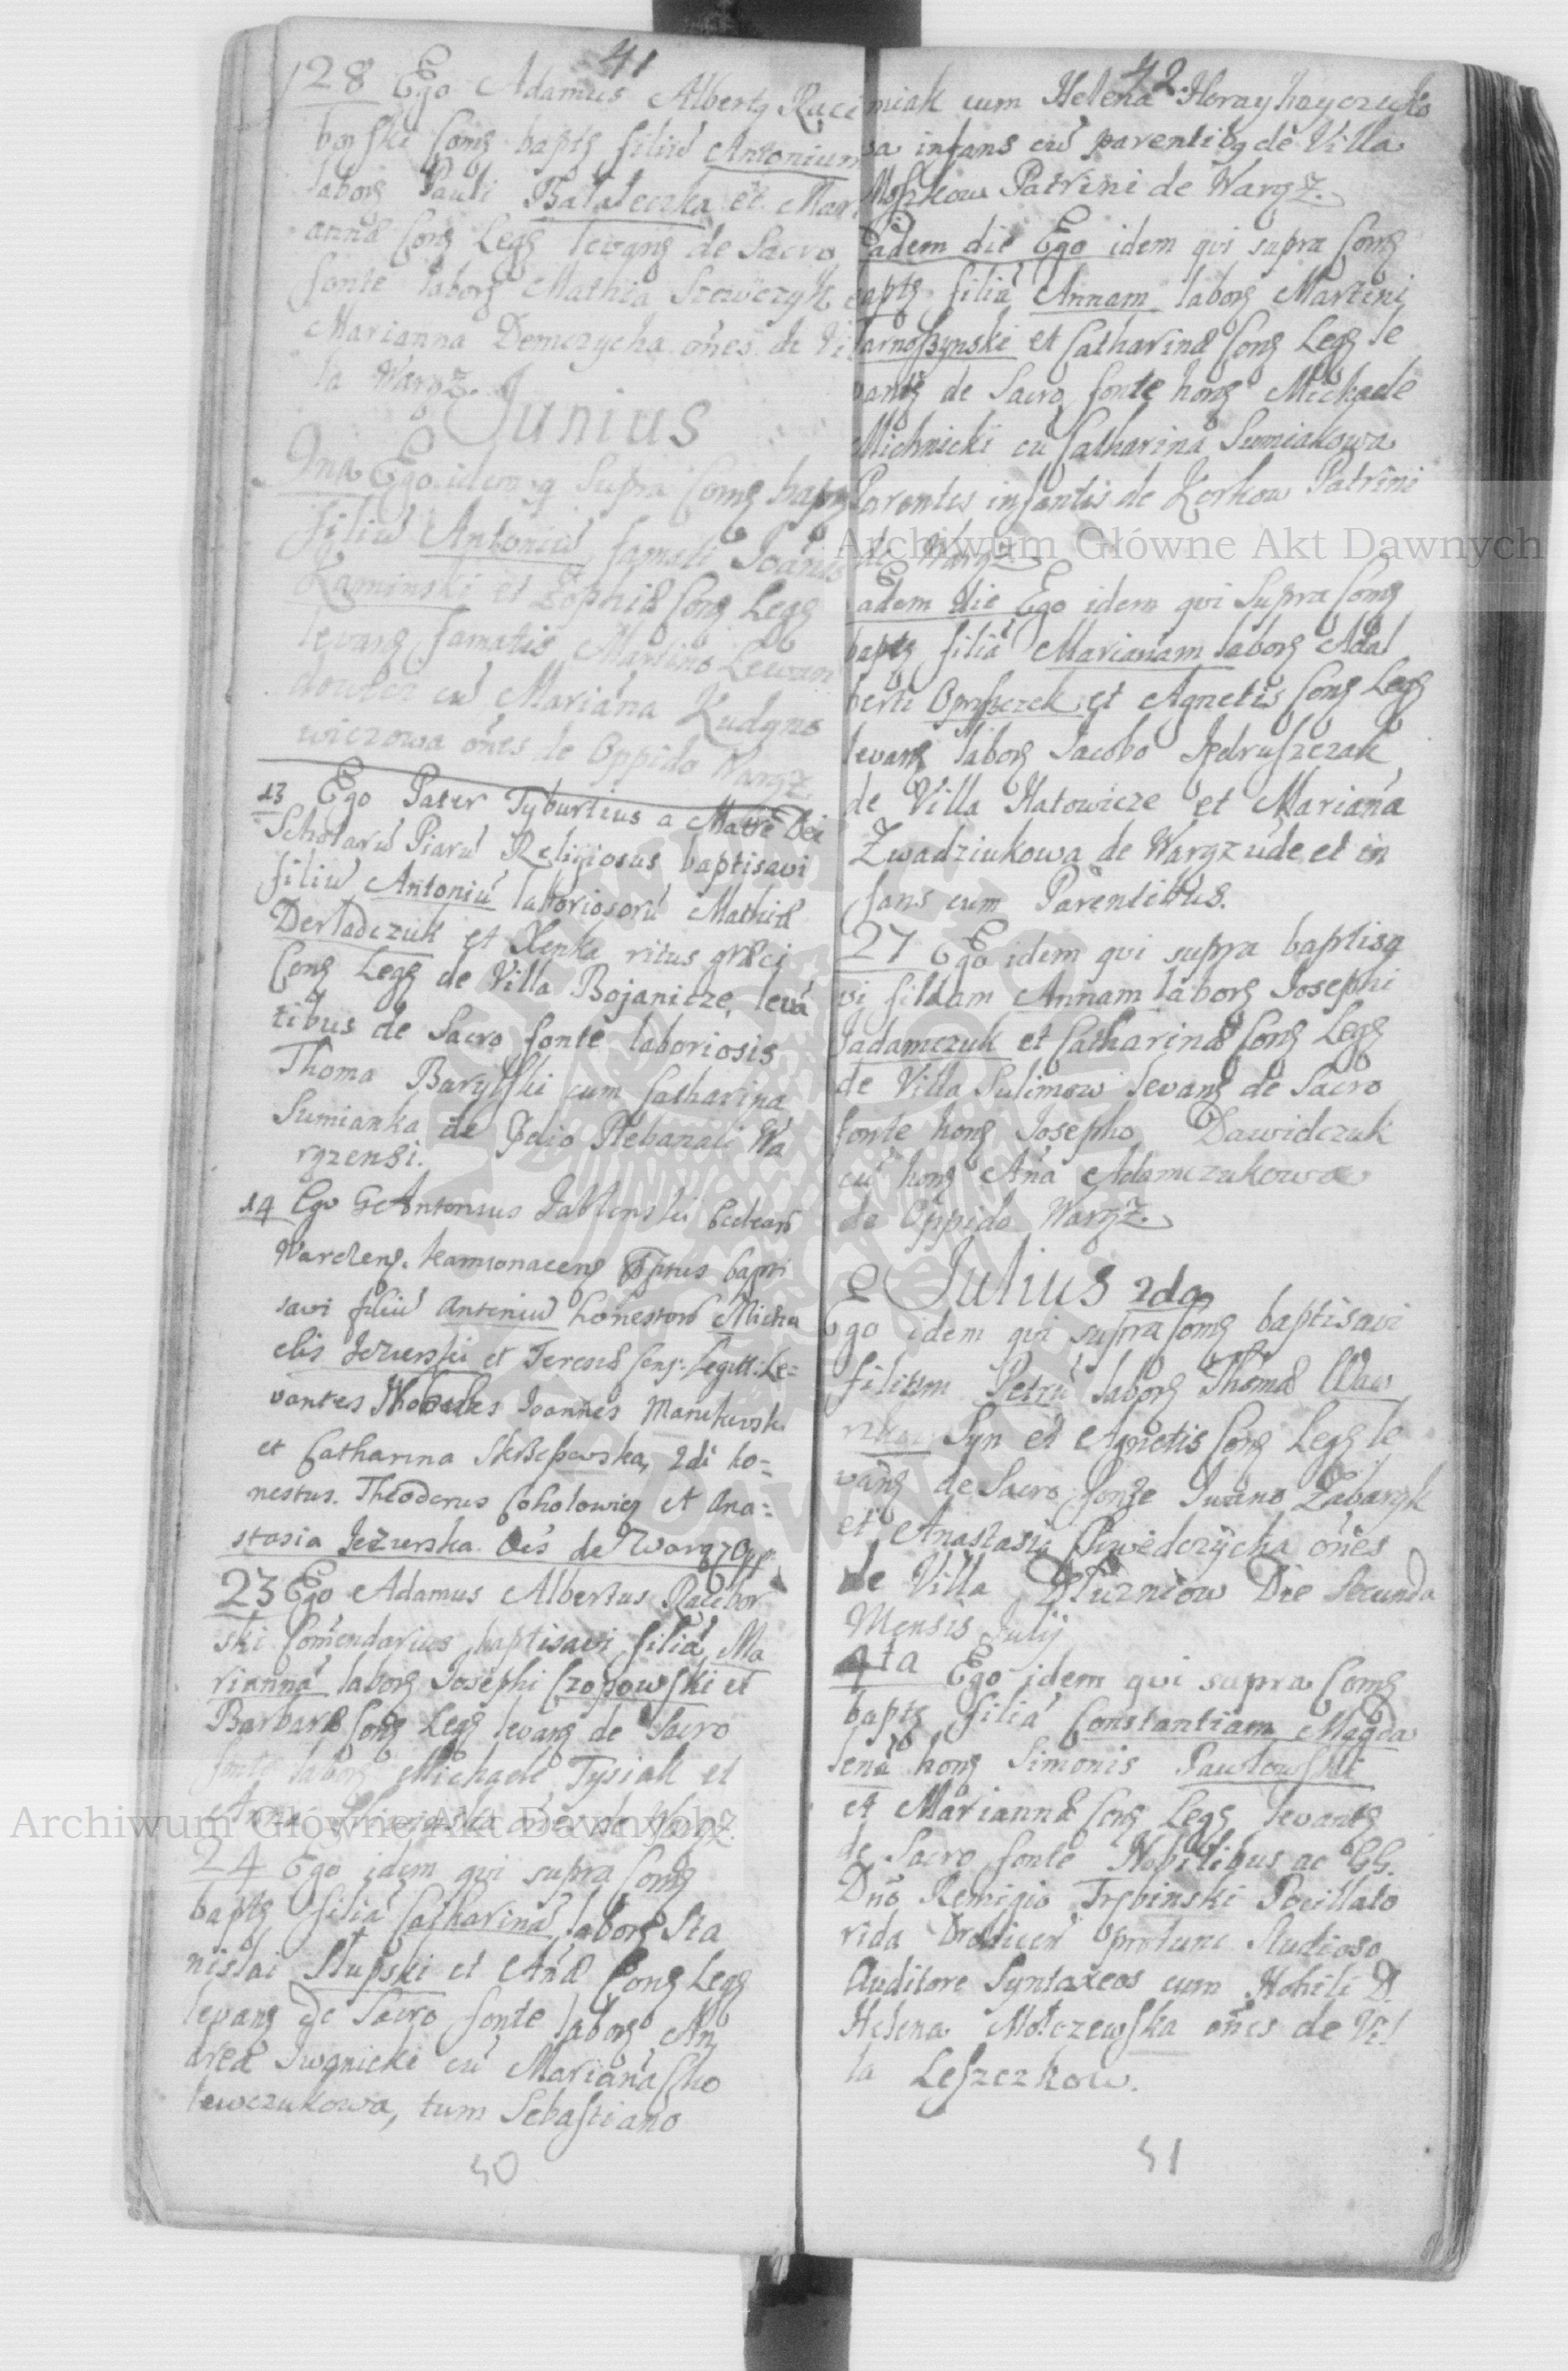 41
28 Ego Adamus Albertg Raci
borski Comg baptg filiũ Antonium
laborg Pauli Balaleczka et Mari
annæ Cong Legg levang de Sacro
fonte laborg Mathia Szewczyk et
Marianna Demczycha oñes de Vi
la Waręż.
Junius
Ego idem q Supra Comg baptg
filiũ Antoniũ famati Joanis
Kaminski et Zophiæ Cong Legg
levang famatis Martino Lewan
dowicz cũ Mariãna Kudyno
wiczowa oñes de Oppido Waręż
13 Ego Pater Tyburtius a Matre Dei
Scholarũ Piarũ Religiosus baptisavi
filiũ Antoniũ laboriosorũ Mathiæ
Derladczuk et Xenka ritus græci
Cong Legg de Villa Bojanicze, levã
tibus de Sacro fonte laboriosis
Thoma Barylski cum Catharina
Sumianka de Plebanali Wa
rężensi.
14 Ego Antonius Jablonski
bapti
savi filiũ Antoniũ honestorũ Micha
elis Jezierski et Teresiæ Conj: Legitt: Le=
vantes Joannes
et Catharina 2di ho=
nestus. Theodorus Soholowicz et Ana=
stasia Jezierska Oẽs de Waręż Opp.
23 Ego Adamus Albertus Racibor
ski Comendarius baptisavi filiã Ma
riannã laborg Josephi Czopowski et
Barbaræ Cong Legg levang de Sacro
fonte laborg Michaele Tysiak et
Anna oñes de Waręż.
24 Ego idem qui supra Comg
baptg filiã Catharinã laborg Sta
nislai Słupski et Añæ Cong Legg
levang de Sacro fonte laborg An
drea Iwanicki cũ Mariãna Cho
lewczukowa, tum Sebastiano
50
42.
miak cum Helena
sa infans cũ parentibg de Villa
Moszkow Patrini de Waręż.
Eadem die Ego idem qui supra Comg
baptg filiã Annam laborg Martini
Tarnoszynski et Catharinæ Cong Legg le
vantg de Sacro fonte hong Michaele
Michnicki cũ Catharina Sumiakowa
Parentes infantis de Zorkow Patrini
de Waręż
Eadem die Ego idem qui Supra Comg
baptg filiã Marianam laborg Adal
berti et Agnetis Cong Legg
levang laborg Jacobo Jędruszczak
de Villa Xatowicze et Mariãna
Zwadziukowa de Waręż et in
fans cum Parentibus.
27 Ego idem qui supra baptisa
vi filiam Annam laborg Josephi
Jadamczuk et Catharinæ Cong Legg
de Villa Sulimow levang de Sacro
fonte hong Josepho Dawidczuk
cũ hong Añã Adamczukowa
de Oppido Waręż.
Julius 2da
Ego idem qui supra Comg baptisavi
filium Petrũ laborg Thomæ Waw
Syn et Agnetis Cong Legg le
vang de Sacro fonte Iwano Zabaryk
et Anastasia Chwedczycha oñes
de Villa Dłużniow Die Secunda
Mensis Julij
4ta Ego idem qui supra Comg
baptg filiã Constantiam Magda
lenã hong Simonis Pawłowski
et Mariannæ Cong Legg levantg
de Sacro fonte Nobilibus ac GG.
Dño Remigio Trębinski Pocillato
rida protunc Studioso
Auditore Syntaxeos cum Nobili D.
Helena Mołczewska oñes de Vil
la Leszczkow.
51
Archiwum Główne Akt Dawnych
Archiwum Główne Akt Dawnych